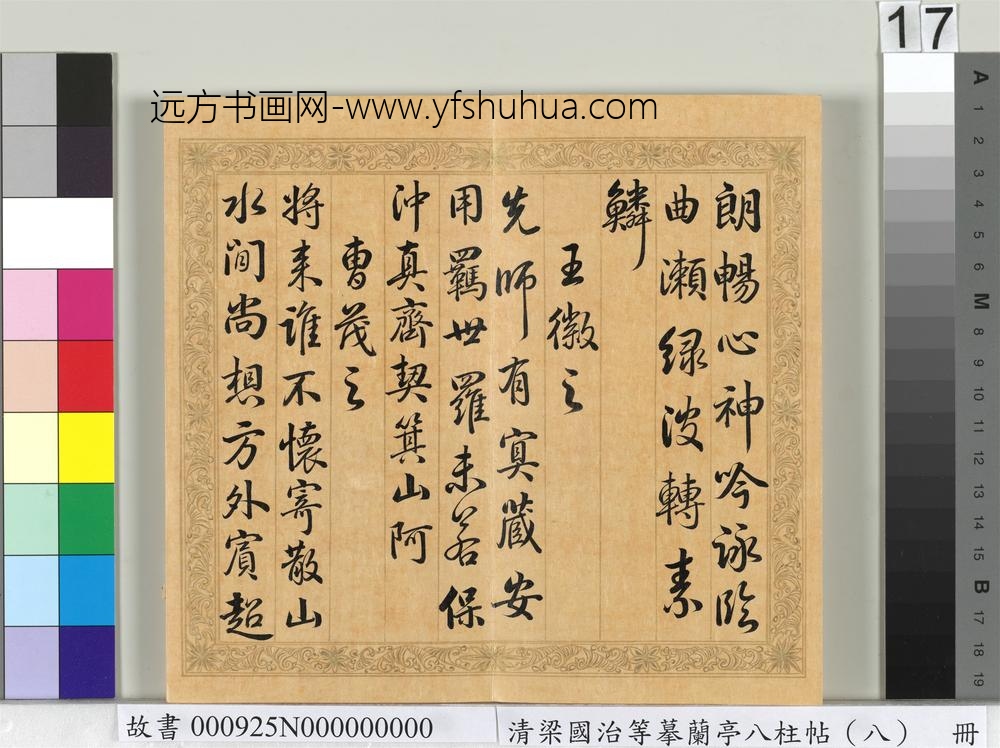 17
远方书画网-www.yfshuhua.com
朗暢心神吟詠臨
曲瀬緑波轉素
鱗
王徽之
先師有冥藏安
用羈世羅未若保
沖真齊契箕山阿
曹茂之
將来誰不懷寄散山
水间尚想方外賓超
A
1
2
3
4
5
6
M
8
9
10
11
12
13
14
15
B
17
18
19
故書 000925N000000000
清梁國治等摹蘭亭八柱帖（八） 冊